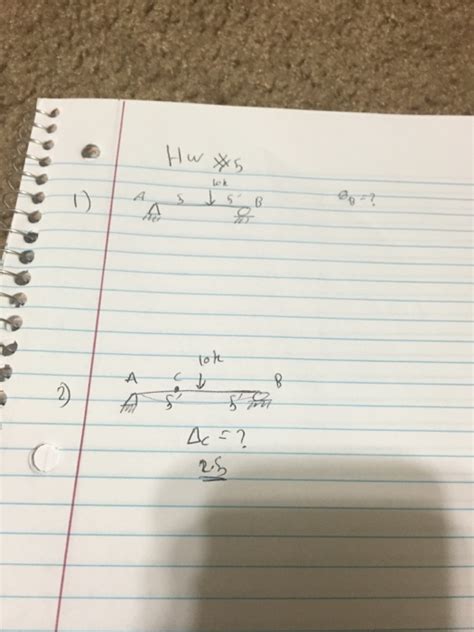 Hw #5
10k
1) A 5 5' B θB=?
10k
A C B
2) 5' 5'
Δc = ?
2.5